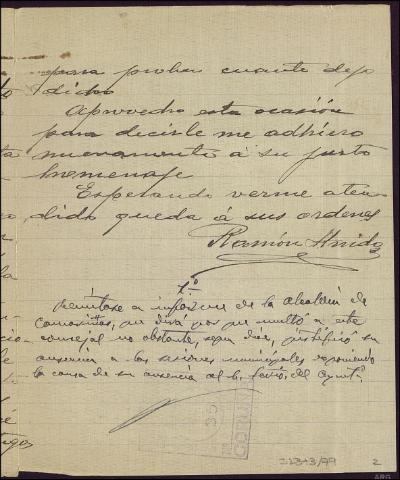 para probar cuanto dejo
dicho
Aprovecho esta ocasión
para decirle me adhiero
nuevamente á su justo
homenaje
Esperando verme aten
dido queda á sus ordenes
Ramón
1º
Remítase a informe de la alcaldía de
Camariñas, que diga por qué multó a este
concejal no obstante, según dice, justificó su
ausencia a las sesiones municipales exponiendo
la causa de su ausencia al del Ayunt.º
35
CORUÑA
2